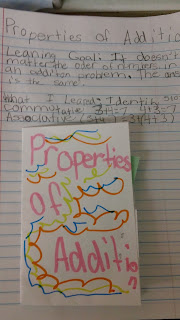 Properties of Additio
Leaning Goal: It doesn't
matter the oder of
an addition problem. The
is the same.
What I Learnd: Identity
Commutative 3+4=7 4+3=7
Associative
Properties
of
Addition